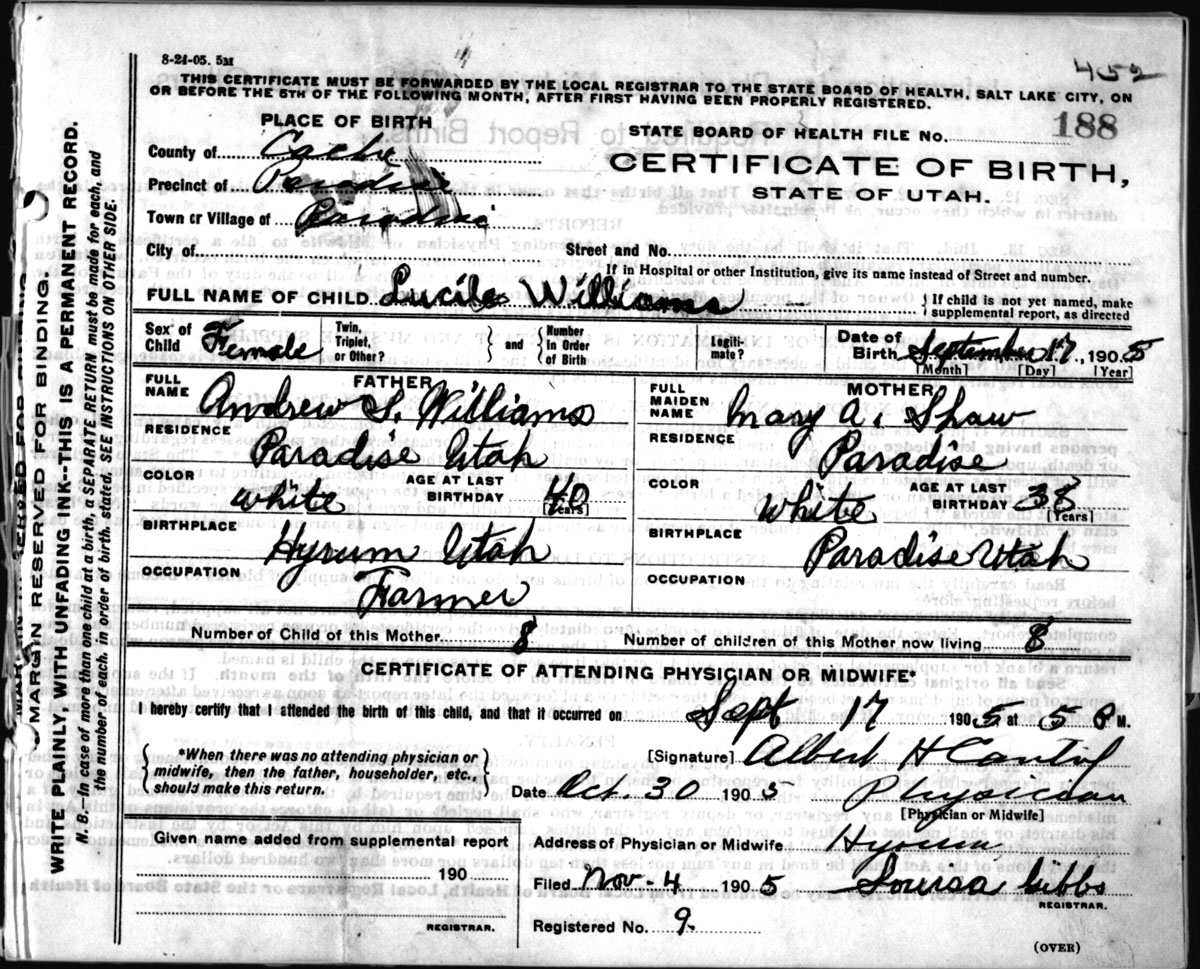 8-24-05. 5M
452
THIS CERTIFICATE MUST BE FORWARDED BY THE LOCAL REGISTRAR TO THE STATE BOARD OF HEALTH, SALT LAKE CITY, ON
OR BEFORE THE 5TH OF THE FOLLOWING MONTH, AFTER FIRST HAVING BEEN PROPERLY REGISTERED.
PLACE OF BIRTH
STATE BOARD OF HEALTH FILE No. 188
County of Cache
CERTIFICATE OF BIRTH,
Precinct of Paradise
STATE OF UTAH.
Town or Village of Paradise
City of Street and No.
If in Hospital or other Institution, give its name instead of Street and number.
FULL NAME OF CHILD Lucile Williams
If child is not yet named, make
supplemental report, as directed
Sex of Child Female
Twin, Triplet, or Other?
and
Number In Order of Birth
Legiti-mate?
Date of Birth September 17, 1905
[Month] [Day] [Year]
FATHER
FULL NAME Andrew S. Williams
RESIDENCE
Paradise Utah
COLOR white
AGE AT LAST BIRTHDAY 40
[Years]
BIRTHPLACE
Hyrum Utah
OCCUPATION
Farmer
MOTHER
FULL MAIDEN NAME Mary A. Shaw
RESIDENCE
Paradise
COLOR white
AGE AT LAST BIRTHDAY 38
[Years]
BIRTHPLACE
Paradise Utah
OCCUPATION
Number of Child of this Mother 8 Number of children of this Mother now living 8
CERTIFICATE OF ATTENDING PHYSICIAN OR MIDWIFE*
I hereby certify that I attended the birth of this child, and that it occurred on Sept 17 1905 at 5 P M.
*When there was no attending physician or
midwife, then the father, householder, etc.,
should make this return.
[Signature] Albert H
Date Oct. 30 1905 Physician
[Physician or Midwife]
Given name added from supplemental report
190
REGISTRAR.
Address of Physician or Midwife Hyrum
Filed Nov-4 1905 Louisa Gibbs
REGISTRAR.
Registered No. 9
(OVER)
MARGIN RESERVED FOR BINDING.
WRITE PLAINLY, WITH UNFADING INK--THIS IS A PERMANENT RECORD.
N. B. In case of more than one child at a birth, a SEPARATE RETURN must be made for each, and
the number of each, in order of birth, stated. SEE INSTRUCTIONS ON OTHER SIDE.